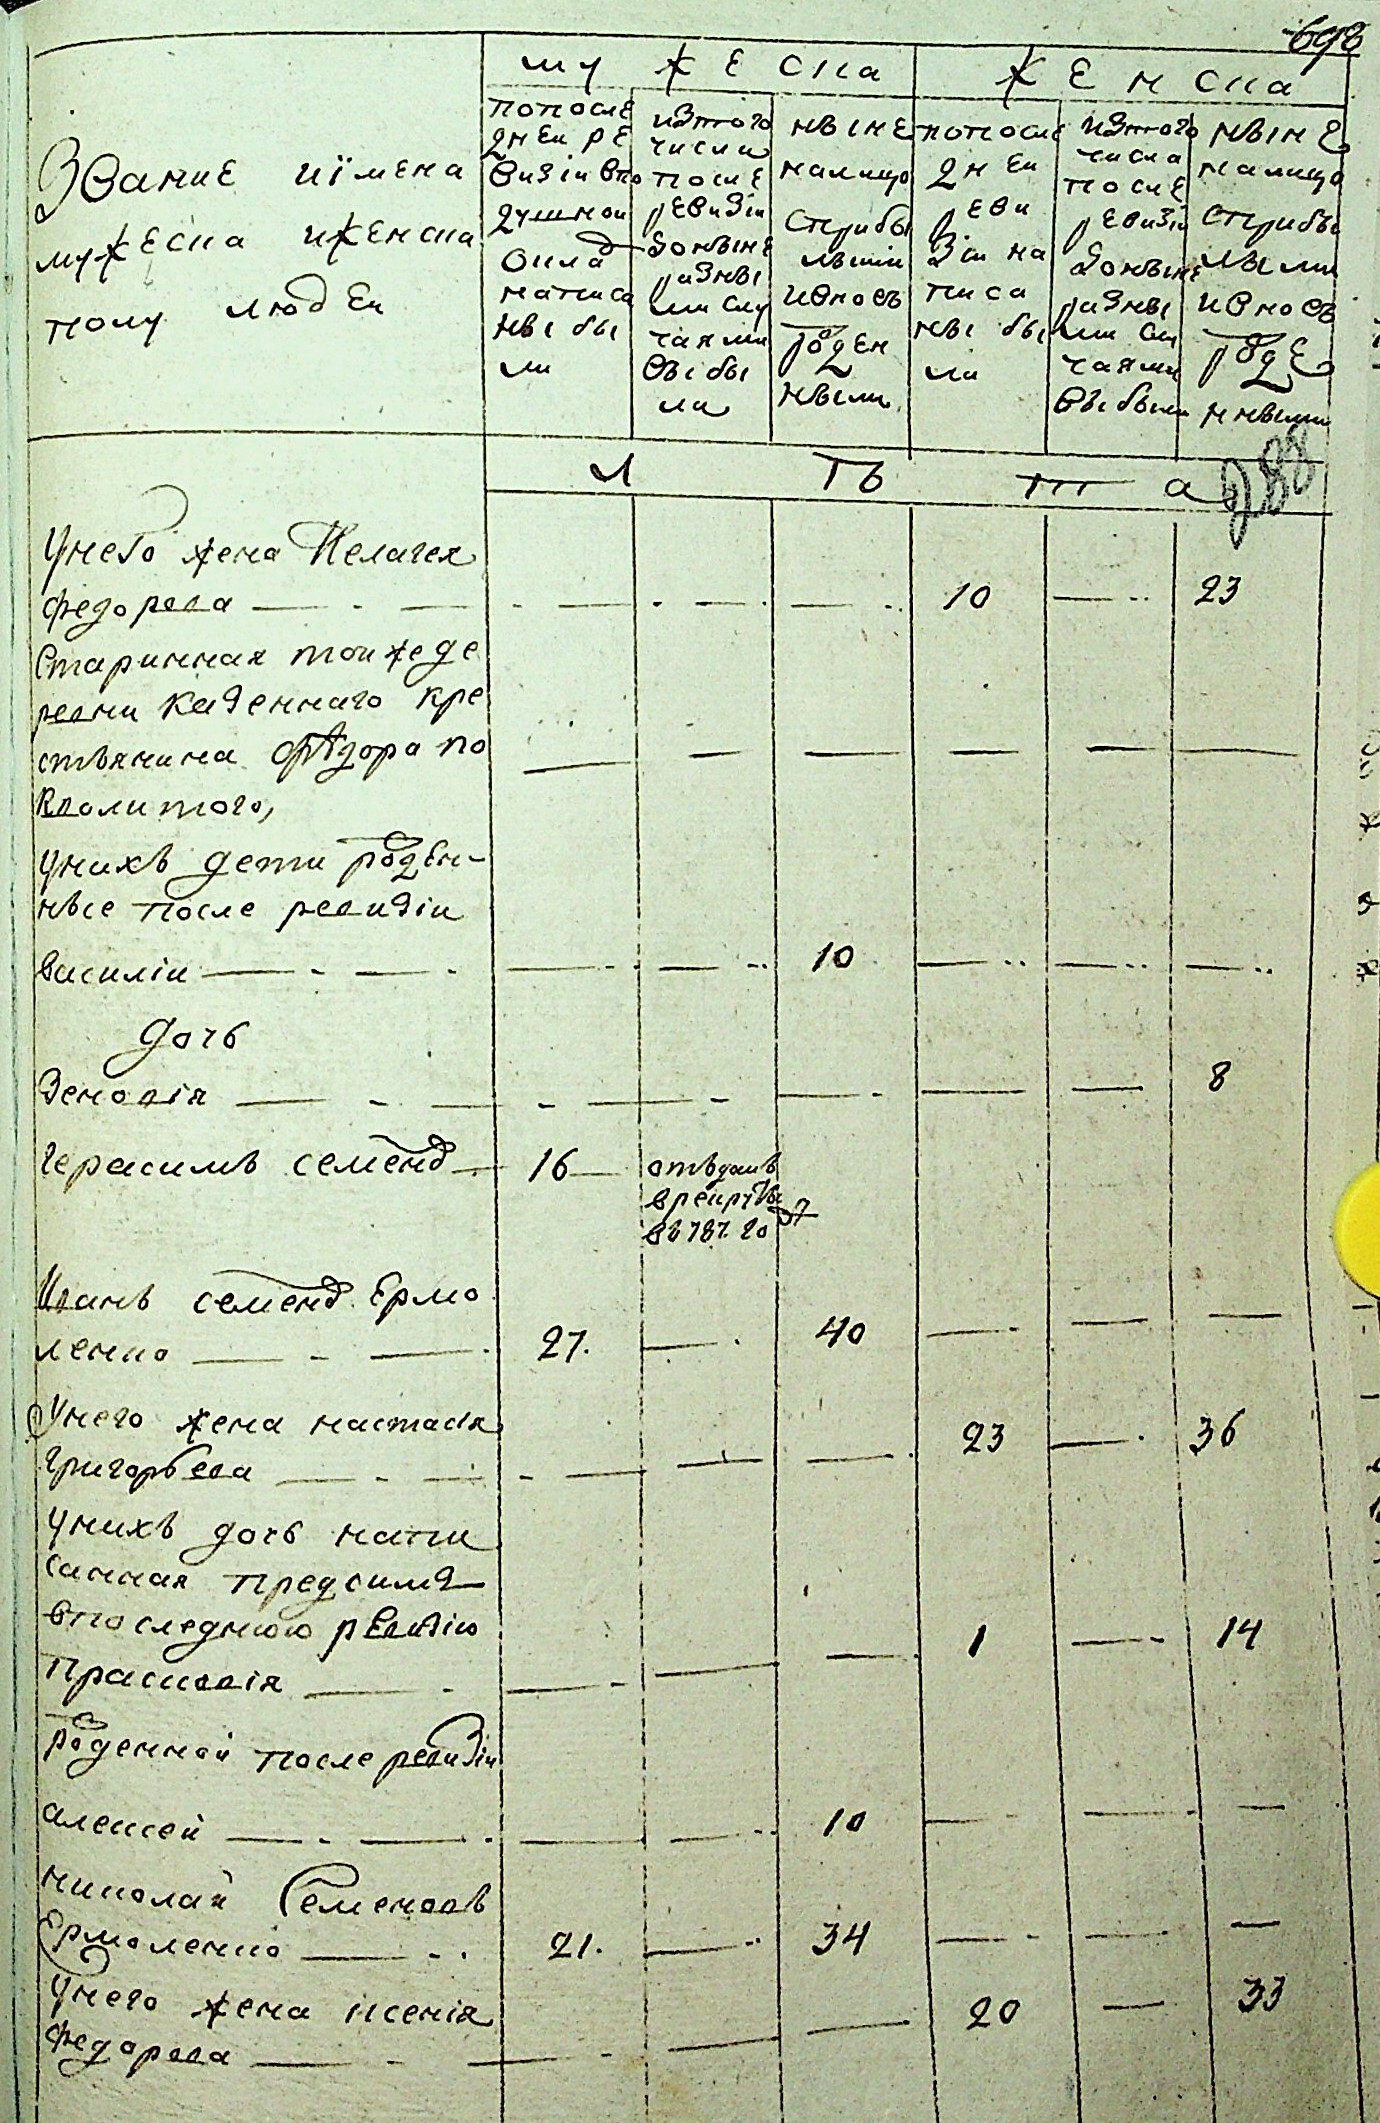 698
МУЖЕСКА
ЖЕНСКА
Звание иімена
мужеска иженска
полу людеи
попосле
днеи ре
визіи впо
душнои
оклад
написа
ны бы
ли
изтого
числа
после
ревизіи
доныне
разны
ми слу
чаями
выбы
ли
ныне
налицо
сприбы
лыми
ивновь
роден
ными
попосле
днеи
реви
зіи на
писа
ны бы
ли
изтого
числа
после
ревизіи
доныне
разны
ми слу
чаями
выбыли
ныне
налицо
сприбы
лыми
ивновь
роде
нными
лѣта
288
Унего жена Пелагея
Федорева 10 23
Старинная тоижеде
ревни казеннаго кре
стьянина Фѣдора по
кволитого,
Унихъ дети роден-
ные после ревизіи
Василіи 10
дочь
Зеновія 8
Герасимъ семенов 16 отъданъ
врекруты
въ 787. году
Иванъ семенов Ермо
ленко 27. 40
Унего жена настасія
Григорьева 23 36
Унихъ дочь напи
санная предсимъ
впоследнюю ревизію
Прасковія 1 14
роденной после ревизіи
алексей 10
николай Семеновъ
Ермоленко 21. 34
Унего жена ксенія
Федорева 20 33